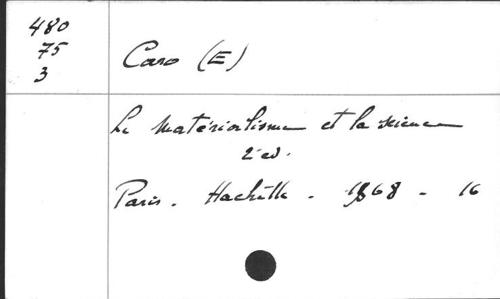 480
75
3
Caro (E)
Le matérialisme et la science
2e ed.
Paris. Hachette. 1868 - 16